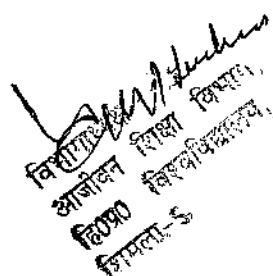 विभागाध्यक्ष
आजीवन शिक्षा विभाग,
हि०प्र० विश्वविद्यालय,
शिमला-5